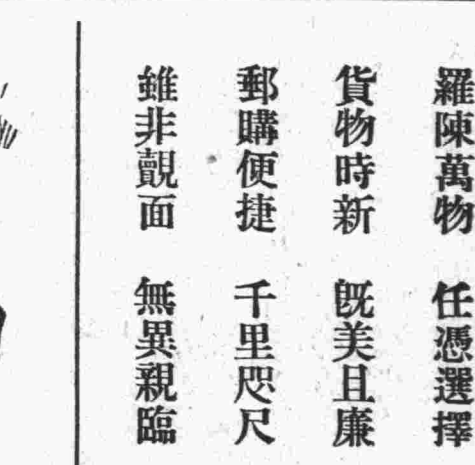 羅陳萬物 任憑選擇
貨物時新 既美且廉
郵購便捷 千里咫尺
雖非覿面 無異親臨